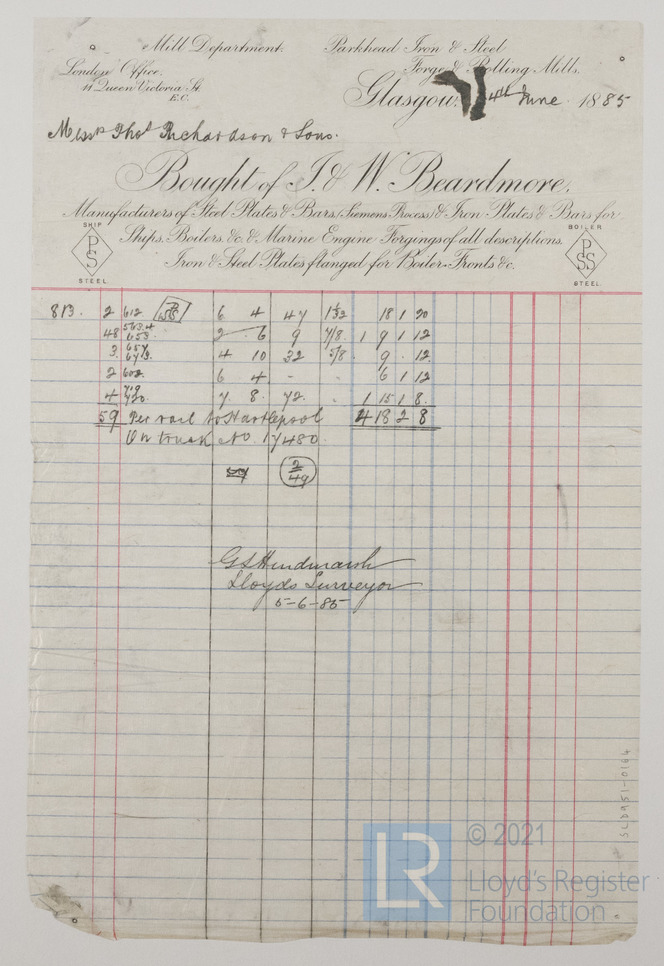 Mill Department.
Parkhead Iron & Steel
Forge & Rolling Mills,
London Office.
11 Queen Victoria St.
E.C.
Glasgow, 4th June 1885
Messrs Thos Richardson & Sons.
Bought of J. & W. Beardmore,
Manufacturers of Steel Plates & Bars, (Siemens Process) & Iron Plates & Bars for
Ships, Boilers, &c. & Marine Engine Forgings of all descriptions.
Iron & Steel Plates flanged for Boiler-Fronts &c.
SHIP
PS
STEEL
BOILER
PSS
STEEL
813. 2 612 6 4 47 18 1 20
48 653 2 6 9 7/8 1 9 1 12
3 4 10 32 5/8 9 . 12
2 602 6 4 - - 6 1 12
4 720 7 8 72 1 15 1 8
59 Per rail to Hartlepool 4 18 2 8
On truck No 17480
2
49
G S Hindmarsh
Lloyds Surveyor
5-6-85
SLD951-0164
LR
© 2021
Lloyd's Register
Foundation